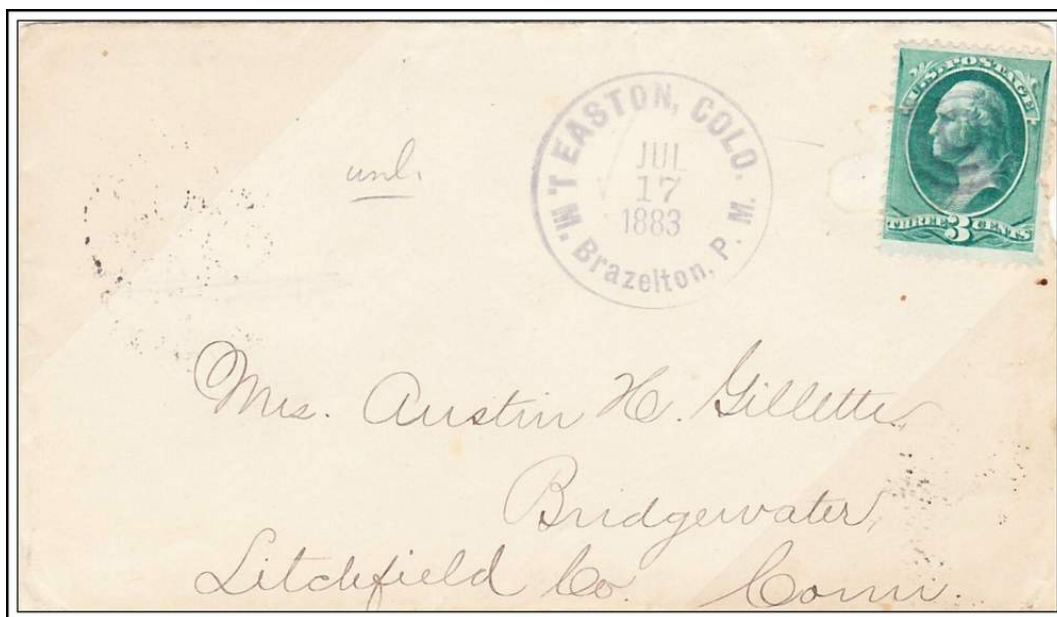 M'T EASTON, COLO.
JUL
17
1883
M. Brazelton, P. M.
U.S. POSTAGE
THREE 3 CENTS
Mrs. Austin H. Gillette,
Bridgewater,
Litchfield Co. Conn.